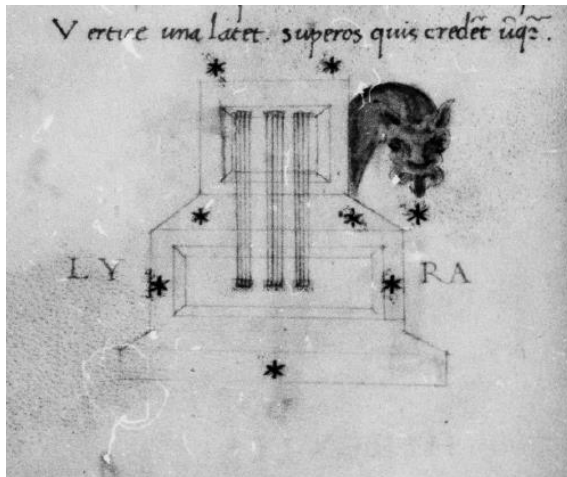 Vertice una latet. superos quis credēt ūqꝫ.
LY RA